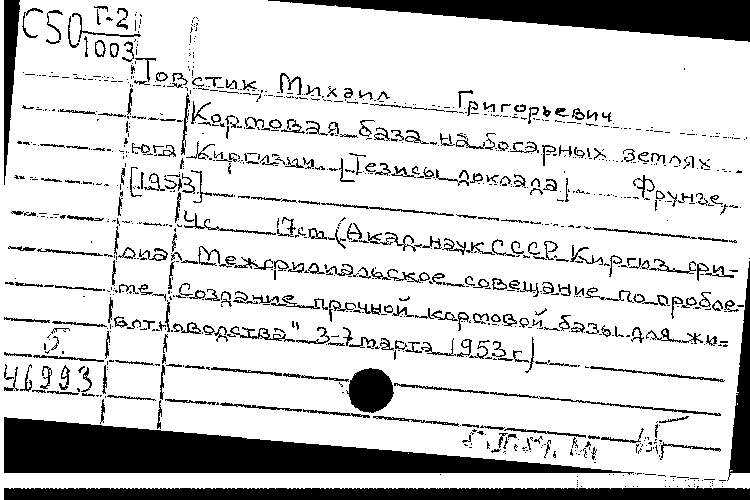 С50 Г-2
1003
Товстик, Михаил Григорьевич
Кормовая база на богарных землях
юга Киргизии. [Тезисы доклада]. Фрунзе,
[1953]
4с. 17см (Акад. наук СССР. Киргиз. фи-
лиал. Межфилиальское совещание по пробле-
ме "создание прочной кормовой базы для жи-
вотноводства" 3-7 марта 1953 г.)
б.
46993